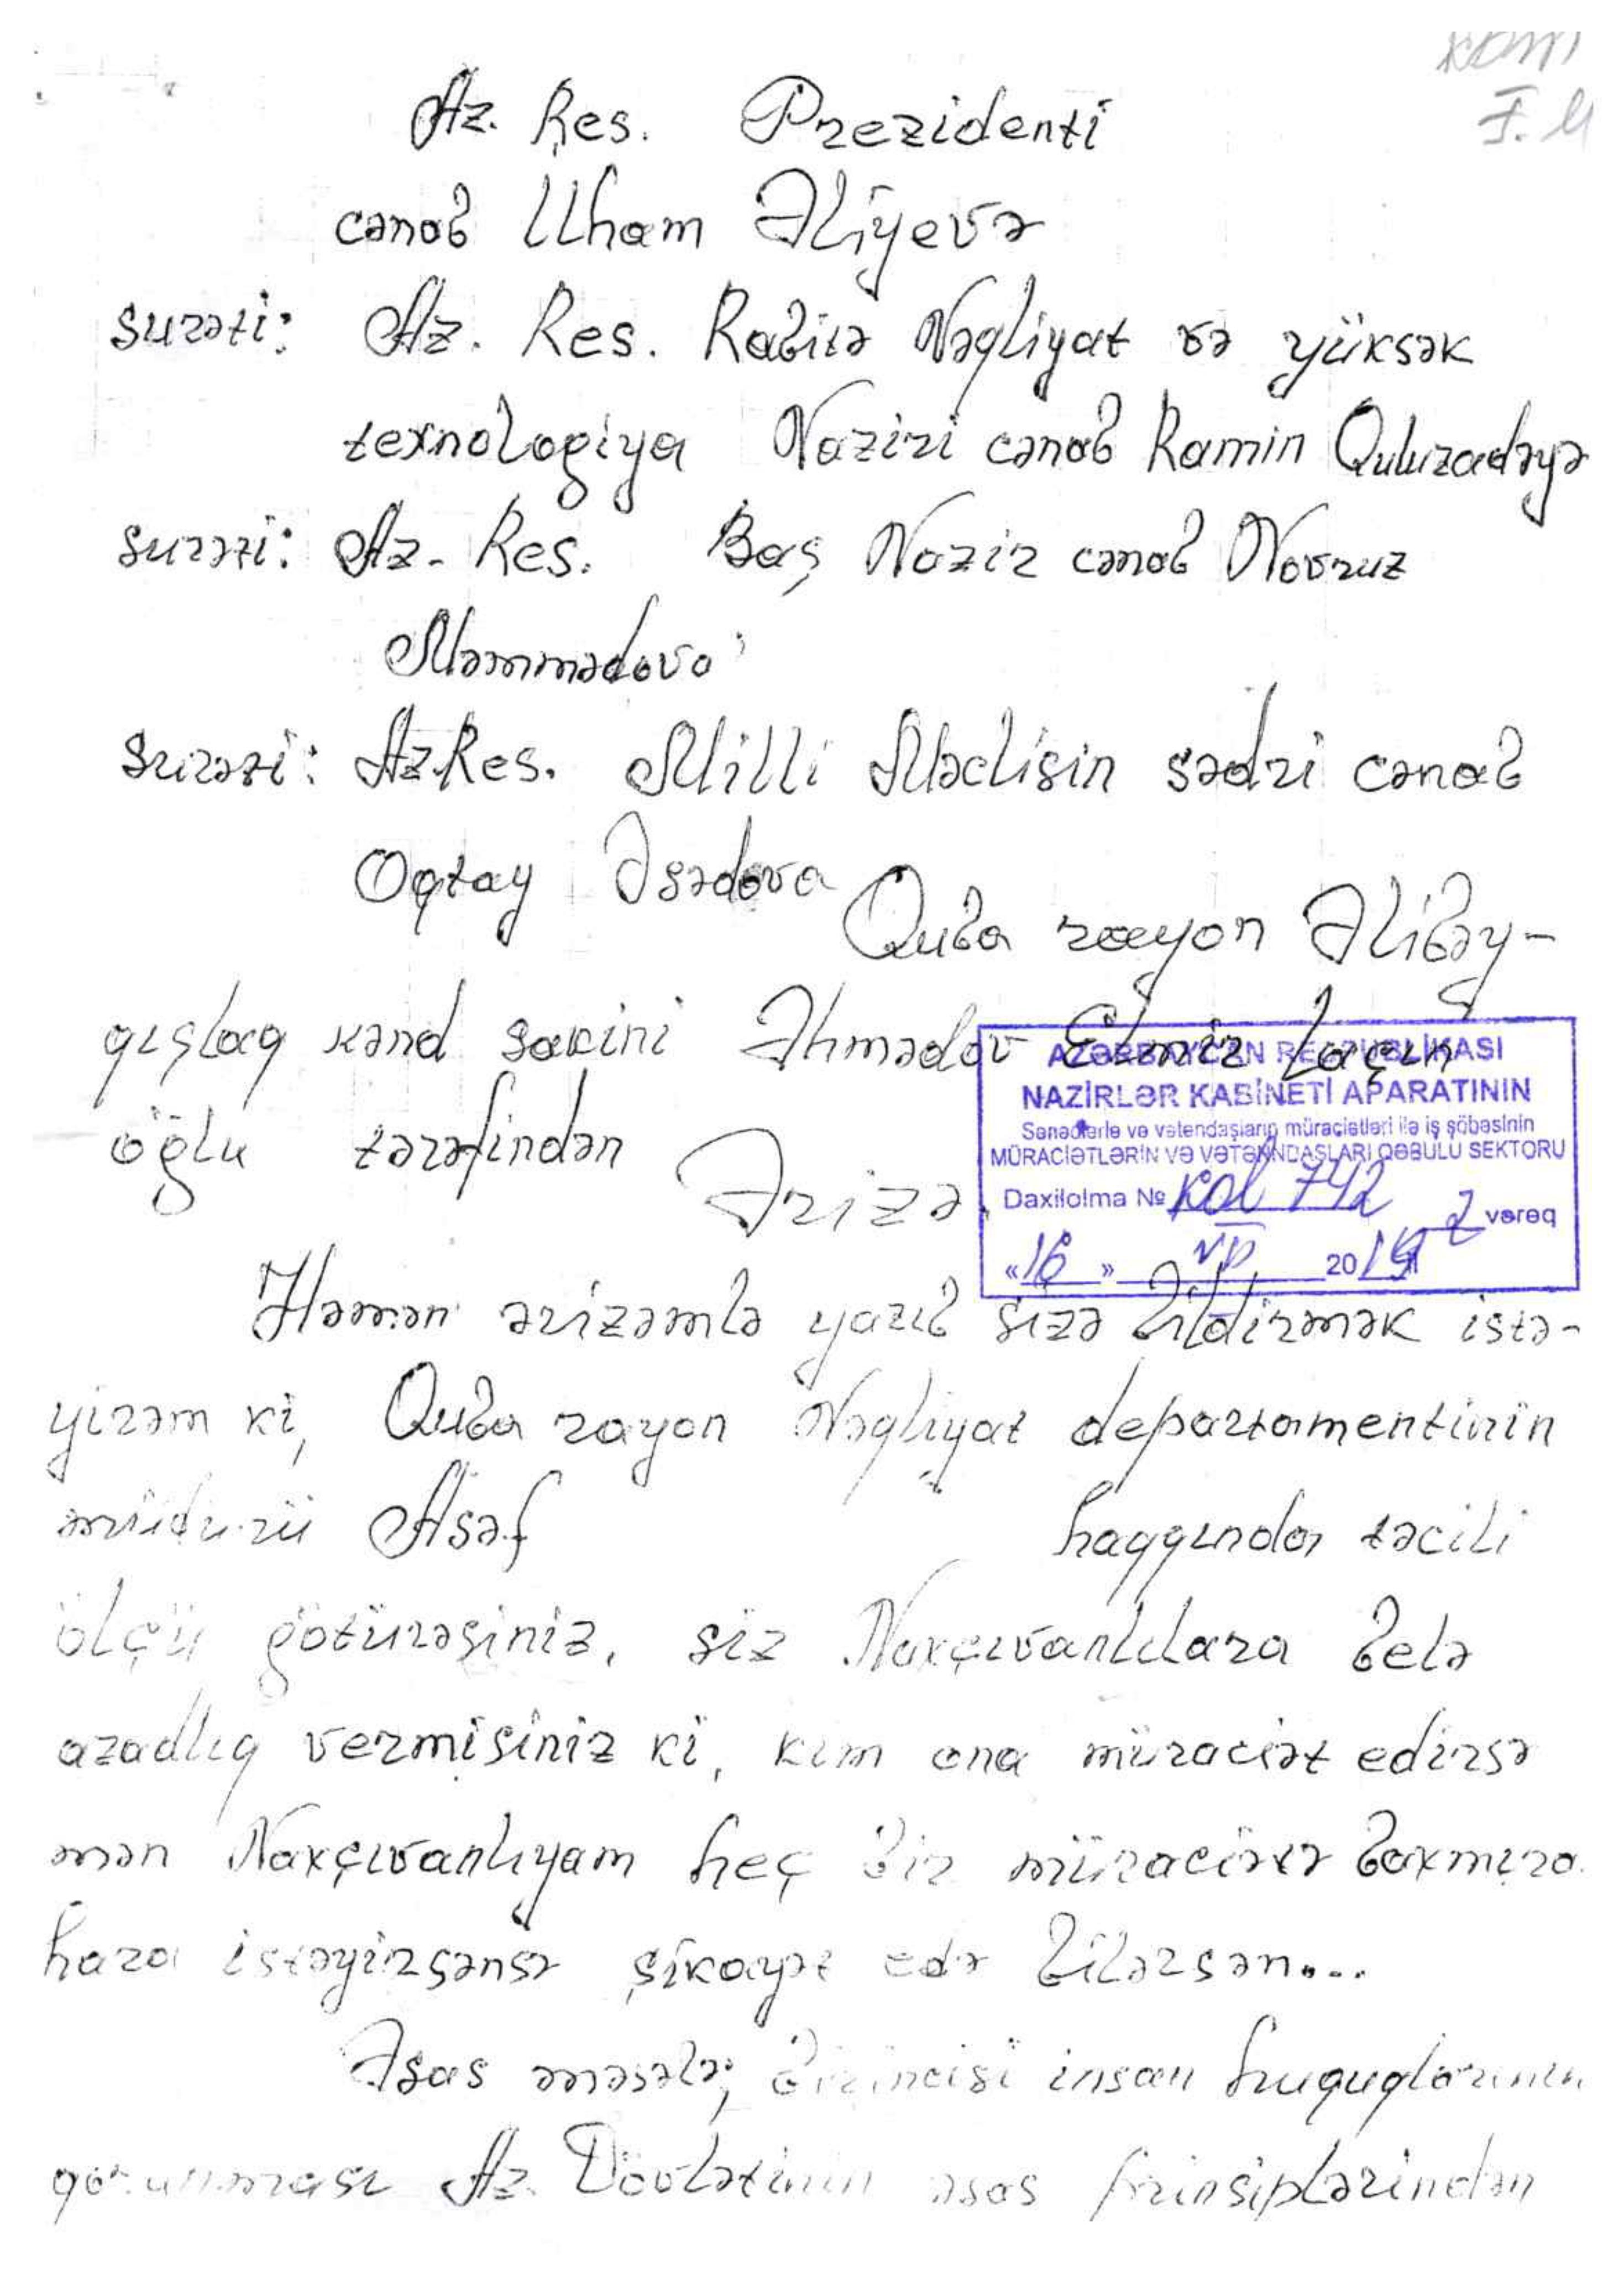 kom
F. M
Az. Res. Prezidenti
cənab İlham Əliyevə
surəti: Az. Res. Rabitə Nəqliyat və yüksək
texnologiya Naziri cənab Ramin Quluzadəyə
surəti: Az. Res. Baş Nazir cənab Novruz
Məmmədova
surəti: Az.Res. Milli Məclisin sədri cənab
Oqtay Əsədova
Quba rayon Əlibəy-
qışlaq kənd sakini Əhmədov Elmir Laçın
oğlu tərəfindən
Ərizə.
AZƏRBAYCAN RESPUBLİKASI
NAZİRLƏR KABİNETİ APARATININ
Sənədlərlə və vətəndaşların müraciətləri ilə iş şöbəsinin
MÜRACİƏTLƏRİN VƏ VƏTƏNDAŞLARI QƏBULU SEKTORU
Daxilolma № Kol 742 2 vərəq
«16» VII 2019
Həmən ərizəmlə yazıb sizə bildirmək istə-
yirəm ki, Quba rayon Nəqliyat departamentinin
müduri Asəf haqqında təcili
ölçü götürəsiniz, siz Naxçıvanlılara belə
azadlıq vermisiniz ki, kim ona müraciət edirsə
mən Naxçıvanlıyam heç bir müraciətə baxmıra
hara istəyirsənsə şikayət edə bilərsən...
Əsas məsələ; birincisi insan huquqlarının
qorunması Az. Dövlətinin əsas prinsiplərindən